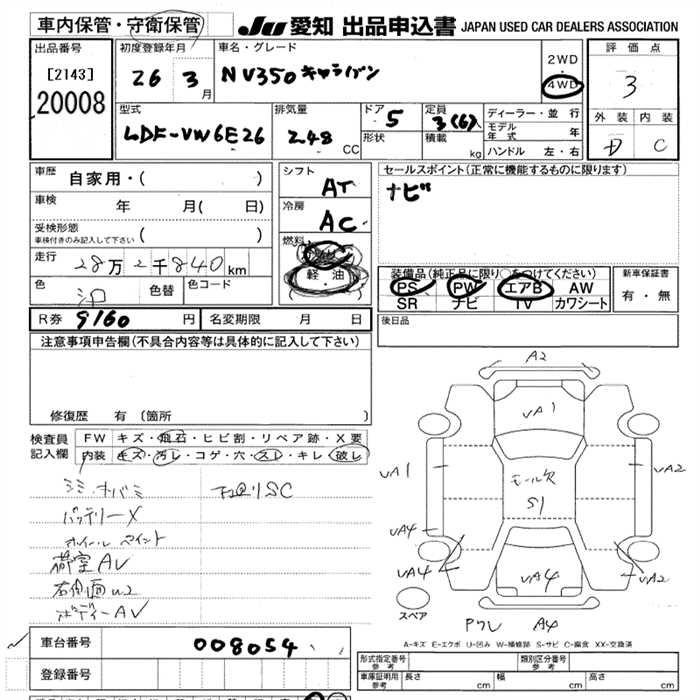 車内保管・守衛保管
JU 愛知 出品申込書 JAPAN USED CAR DEALERS ASSOCIATION
出品番号
[2143]
20008
初度登録年月
26 3月
車名・グレード
NV350キャラバン
2WD
4WD
評価点
3
外装 内装
D C
型式
LDF-VW6E26
排気量
2.48 CC
ドア 5
形状
定員 3(6)
積載 kg
ディーラー・並行
モデル年式 年
ハンドル 左・右
車歴 自家用・( )
車検 年 月( 日)
受検形態
車検付きのみ記入して下さい ( )
走行 28万2千840km
色 シロ 色替 色コード
シフト AT
冷房 AC
燃料
軽油
セールスポイント(正常に機能するものに限ります)
ナビ
装備品(純正品に限り○をつけてください)
PS PW エアB AW
SR ナビ TV カワシート
新車保証書
有・無
R券 9160 円 名変期限 月 日
後日品
注意事項申告欄(不具合内容等は具体的に記入して下さい)
修復歴 有 (箇所 )
検査員記入欄
FW キズ・飛石・ヒビ割・リペア跡・X要
内装 キズ・汚レ・コゲ・穴・スレ・キレ・破レ
バッテリーX
ホイールペイント
荷室AV
右側面U2
ボディーAV
下回りSC
A2
VA1
VA1
VA2
モール欠
S1
VA4
VA4
VA4
VA2
スペア
A4
A-キズ E-エクボ U-凹み W-補修跡 S-サビ C-腐食 XX-交換済
車台番号 008054
登録番号
形式指定番号 参考
類別区分番号 参考
車庫証明用 参考 長さ cm 幅 cm 高さ cm